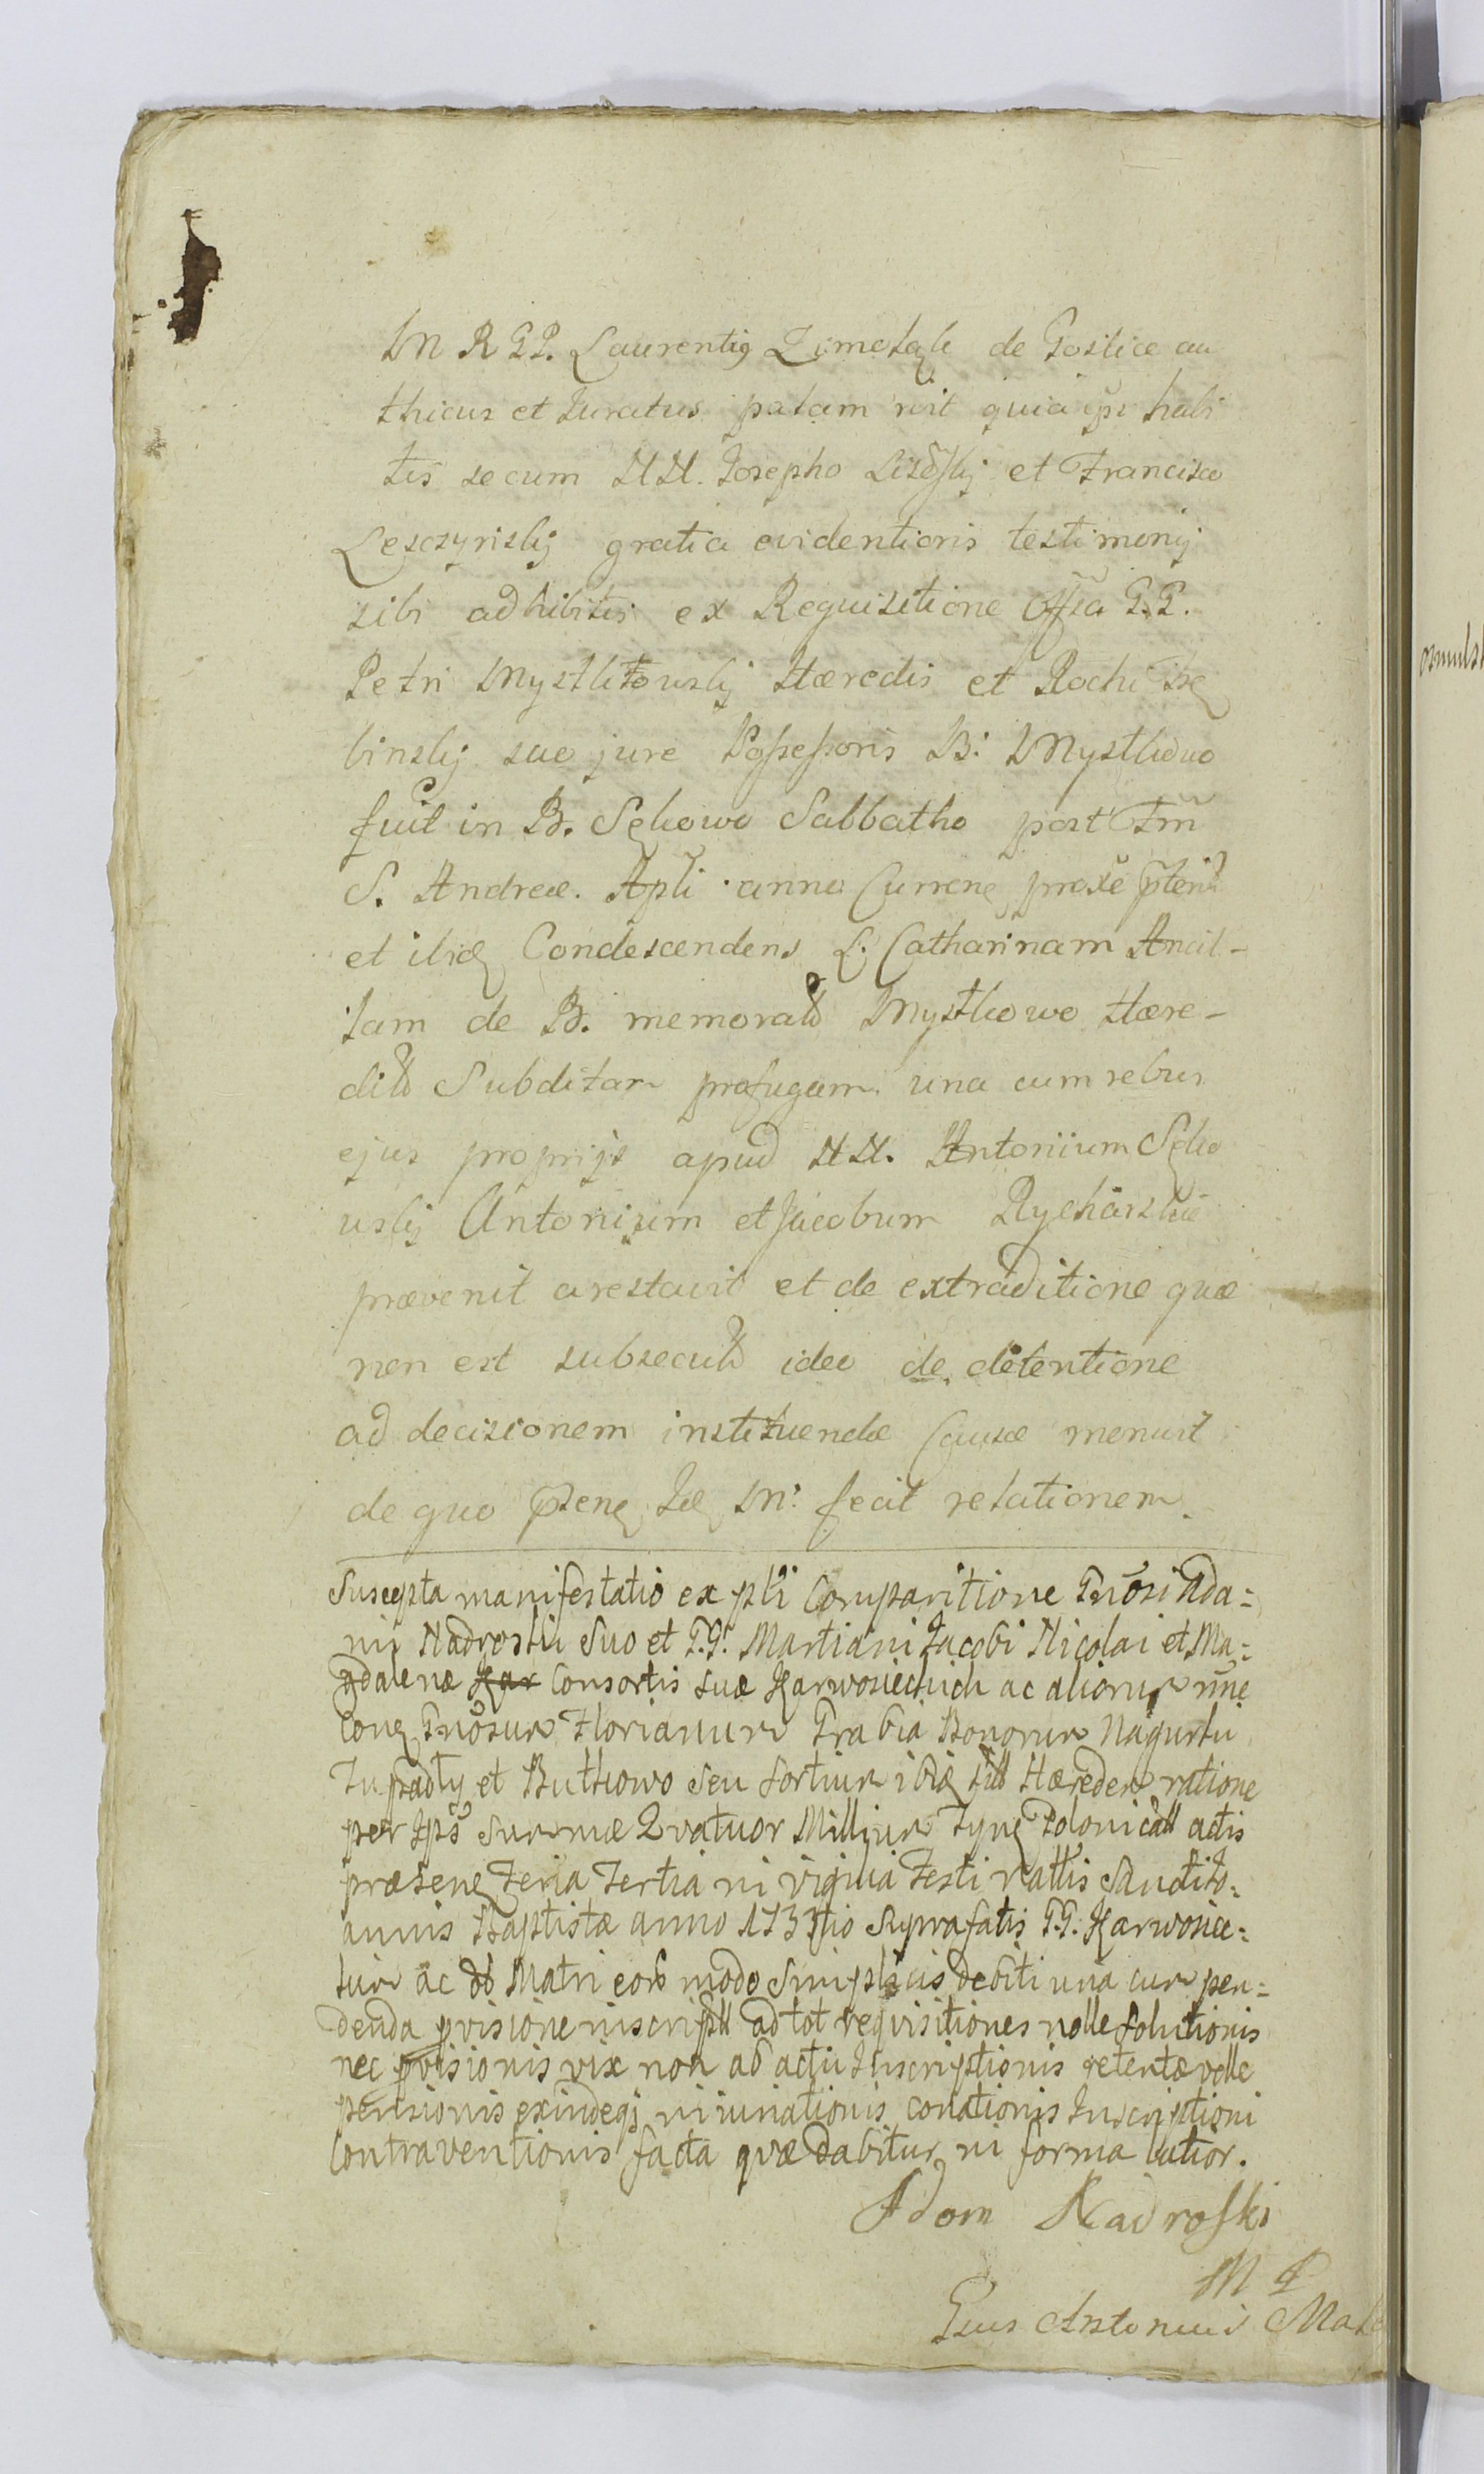 M R GP. Laurentig de Goslice au
thicus et Iuratus palam rvit quia ipse habi
tis secum NN. Josepho et Francisco
Lesczynskij gratia evidentioris testimonij
sibi adhibitis ex Requisitione Offsa G.G.
Petri Haeredis et Rochi
binskij suo jure Possessoris B.
fuit in B. Sękowo Sabbatho post Fm
S. Andreae. Apli anno Curren proxe pterit
et ibid Condescendens L. Catharinam Ancil-
lam de B. memorald Mystkowo Haere-
dit Subditam profugam una cum rebus
ejus proprijs apud NN. Antonium Sęko
wskij Antonium et Jacobum Rycharskie
praevenit arestavit et de extraditione quae
non est subsecuta ideo de detentione
ad decisionem instituendae Causae monuit
de quo M. fecit relationem.
Suscepta manifestatio ex pti Comparitione Gnosi Ada=
mi Nadroski Suo et G.G. Martiani Jacobi Nicolai et Ma=
gdalenae Kar Consortis suae Karwosieckich ac aliorum nne
Gnosum Florianum Grabia Bonorum Nagurki
Tupadły et Buthowo seu sortium ibid Haeredem ratione
per Ips Summae Quatuor Millium Polonicall actis
praesen Feria Tertia in vigilia Festi Nattis Sancti Jo=
annis Baptistae anno Suprafatis G.G. Karwosiec=
kim ac Matri eorum modo Simplicis debiti una cum pen=
denda pvisione inscriptt ad tot requisitiones nolle solutionis
nec pvisionis vix non ab actu Inscriptionis retentae volle
pensionis exindeqz conationis Inscriptioni
Contraventionis facta quae dabitur in forma latior.
Adam Nadroski
M P
Antonius